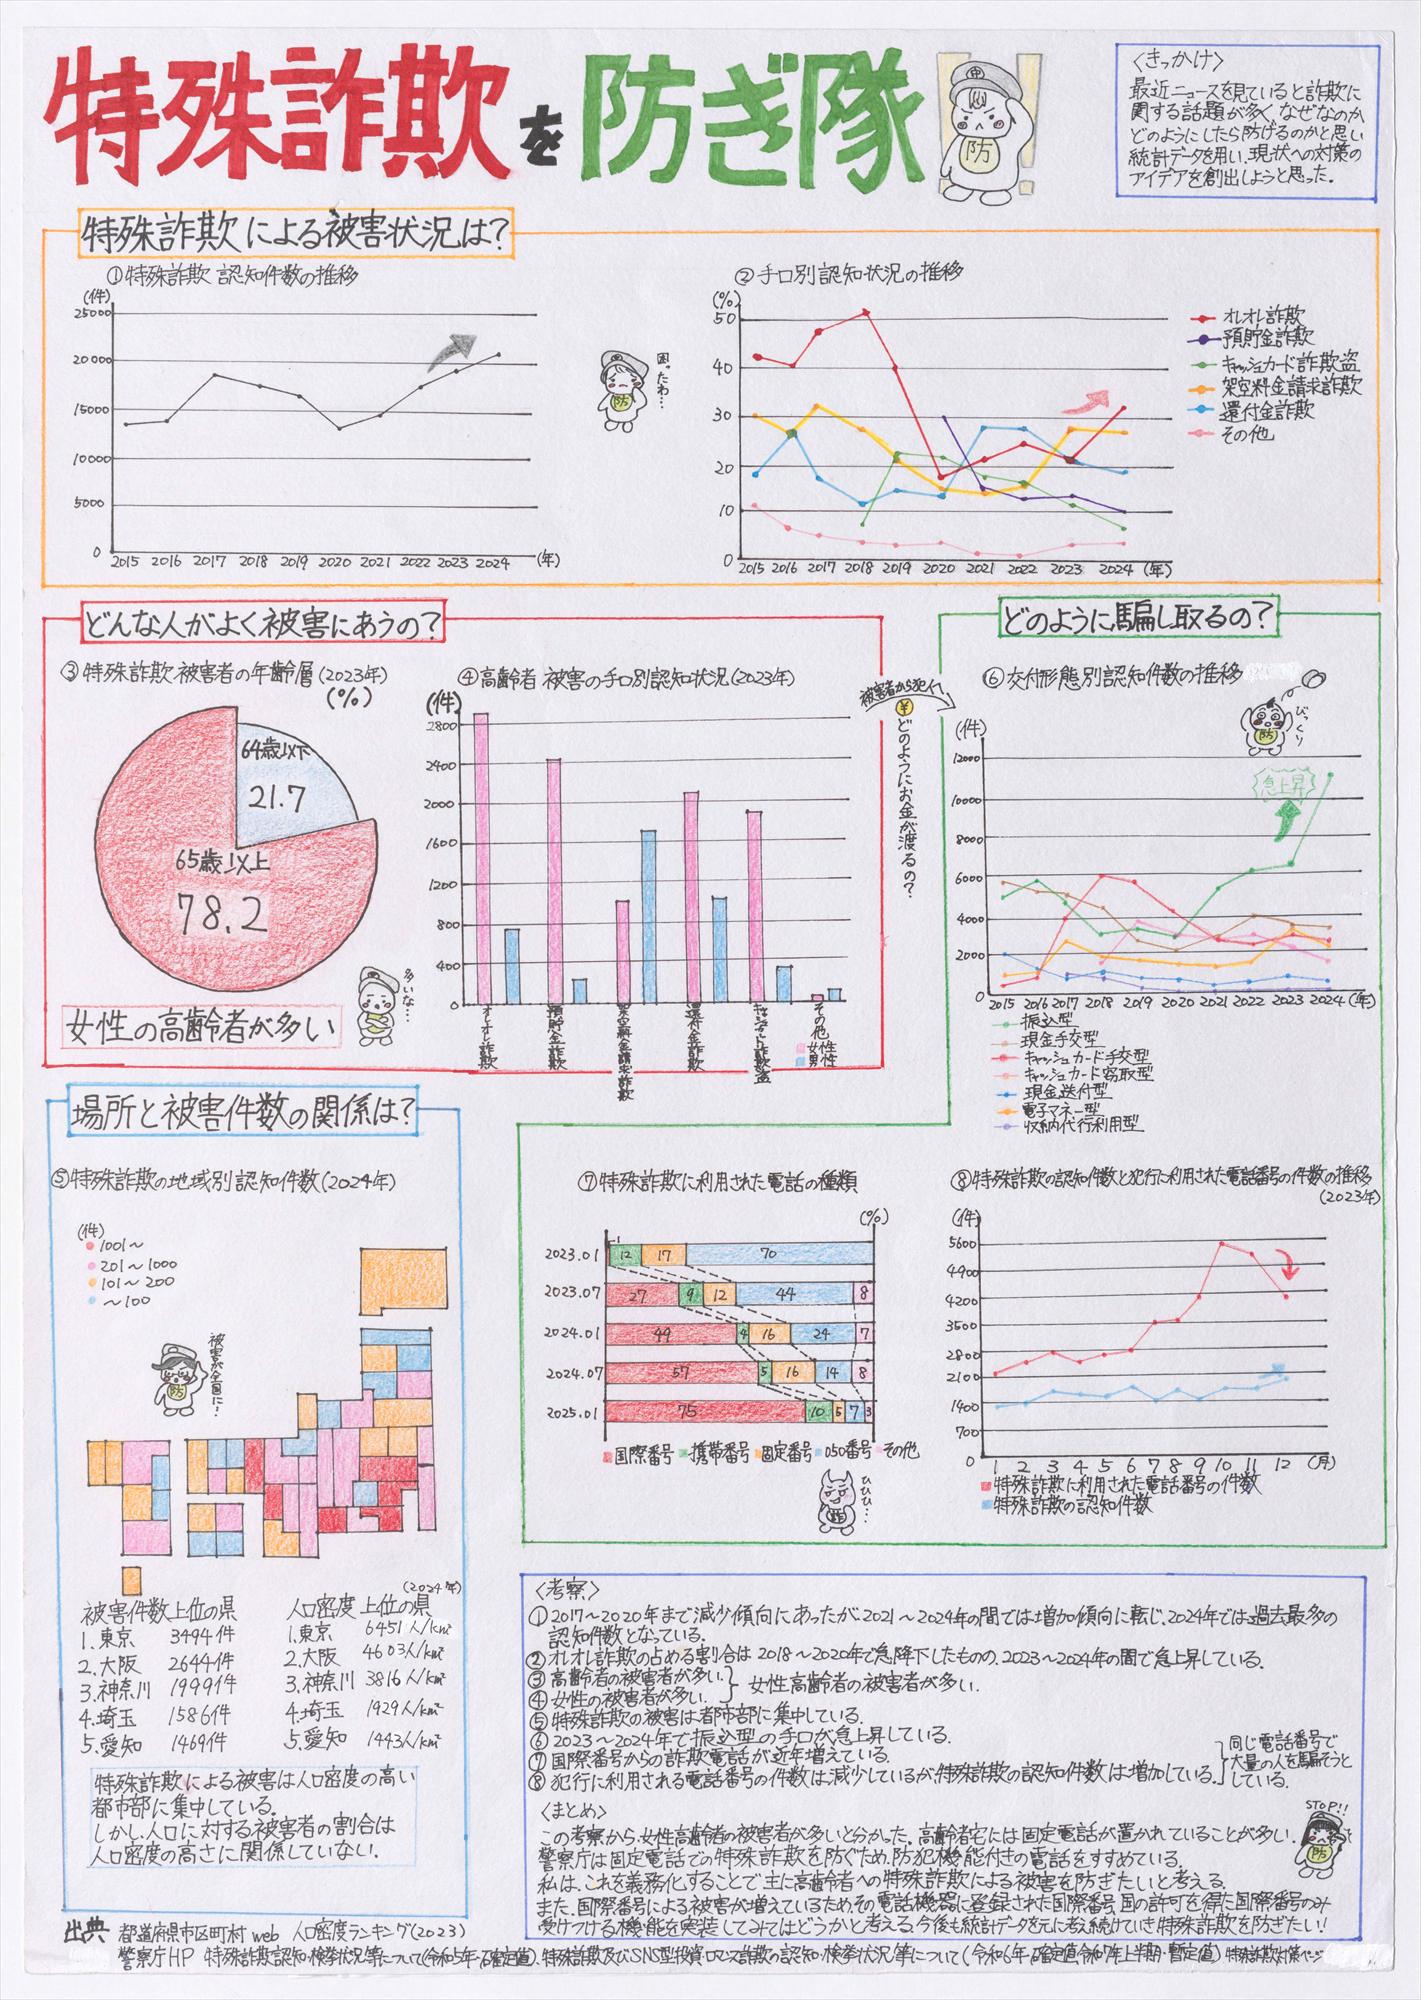 特殊詐欺を防ぎ隊!!
防
〈きっかけ〉
最近ニュースを見ていると詐欺に
関する話題が多く、なぜなのか
どのようにしたら防げるのかと思い
統計データを用い、現状への対策の
アイデアを創出しようと思った。
特殊詐欺による被害状況は?
①特殊詐欺 認知件数の推移
(件)
25000
20000
15000
10000
5000
0
2015 2016 2017 2018 2019 2020 2021 2022 2023 2024 (年)
困ったわ…
防
②手口別認知状況の推移
(%)
50
40
30
20
10
0
2015 2016 2017 2018 2019 2020 2021 2022 2023 2024 (年)
オレオレ詐欺
預貯金詐欺
キャッシュカード詐欺盗
架空料金請求詐欺
還付金詐欺
その他
どんな人がよく被害にあうの?
③特殊詐欺 被害者の年齢層(2023年)
(%)
64歳以下
21.7
65歳以上
78.2
女性の高齢者が多い
多いな…
④高齢者 被害の手口別認知状況(2023年)
(件)
2800
2400
2000
1600
1200
800
400
0
オレオレ詐欺
預貯金詐欺
架空料金請求詐欺
還付金詐欺
キャッシュカード詐欺盗
その他
女性
男性
被害者から犯人へ
¥
どのようにお金が渡るの?
どのように騙し取るの?
⑥交付形態別認知件数の推移
びっくり
防
(件)
急上昇
12000
10000
8000
6000
4000
2000
0
2015 2016 2017 2018 2019 2020 2021 2022 2023 2024 (年)
振込型
現金手交型
キャッシュカード手交型
キャッシュカード窃取型
現金送付型
電子マネー型
収納代行利用型
場所と被害件数の関係は?
⑤特殊詐欺の地域別認知件数(2024年)
(件)
1001~
201~1000
101~200
~100
被害が全国に…
防
(2024年)
被害件数上位の県
1.東京 3494件
2.大阪 2644件
3.神奈川 1999件
4.埼玉 1586件
5.愛知 1469件
人口密度 上位の県
1.東京 6451人/km²
2.大阪 4603人/km²
3.神奈川 3816人/km²
4.埼玉 1929人/km²
5.愛知 1443人/km²
特殊詐欺による被害は人口密度の高い
都市部に集中している。
しかし、人口に対する被害者の割合は
人口密度の高さに関係していない.
⑦特殊詐欺に利用された電話の種類
(%)
2023.01 1 12 17 70
2023.07 27 9 12 44 8
2024.01 49 4 16 24 7
2024.07 57 5 16 14 8
2025.01 75 10 5 7 3
国際番号 携帯番号 固定番号 050番号 その他
ひひひ…
詐
⑧特殊詐欺の認知件数と犯行に利用された電話番号の件数の推移
(2023年)
(件)
5600
4900
4200
3500
2800
2100
1400
700
0
1 2 3 4 5 6 7 8 9 10 11 12 (月)
特殊詐欺に利用された電話番号の件数
特殊詐欺の認知件数
〈考察〉
①2017~2020年まで減少傾向にあったが、2021~2024年の間では増加傾向に転じ、2024年では過去最多の
認知件数となっている.
②オレオレ詐欺の占める割合は2018~2020年で急降下したものの、2023~2024年の間で急上昇している.
③高齢者の被害者が多い.
④女性の被害者が多い.
女性高齢者の被害者が多い.
⑤特殊詐欺の被害は都市部に集中している.
⑥2023~2024年で振込型の手口が急上昇している.
⑦国際番号からの詐欺電話が近年増えている.
⑧犯行に利用される電話番号の件数は減少しているが、特殊詐欺の認知件数は増加している.
同じ電話番号で
大量の人を騙そうと
している.
〈まとめ〉
この考察から、女性高齢者の被害者が多いと分かった.高齢者宅には固定電話が置かれていることが多い.
警察庁は固定電話での特殊詐欺を防ぐため、防犯機能付きの電話をすすめている.
私は、これを義務化することで主に高齢者への特殊詐欺による被害を防ぎたいと考える.
また、国際番号による被害が増えているため、その電話機器に登録された国際番号、国の許可を得た国際番号のみ
受けつける機能を実装してみてはどうかと考える.今後も統計データを元に考え続けていき特殊詐欺を防ぎたい!
STOP!!
防
出典 都道府県市区町村web 人口密度ランキング(2023)
警察庁HP 特殊詐欺認知・検挙状況等について(令和5年・確定値)、特殊詐欺及びSNS型投資・ロマンス詐欺の認知・検挙状況等について(令和6年・確定値、令和7年上半期・暫定値) 特殊詐欺対策ページ